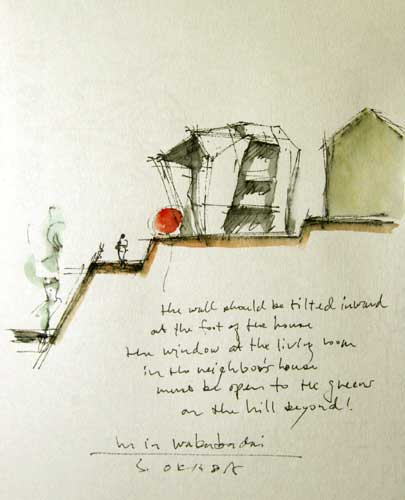 the wall should be tilted inward
at the foot of the house
the window at the living room
in the neighbor's house
must be open to the greens
on the hill beyond!
in wakabadai
S.